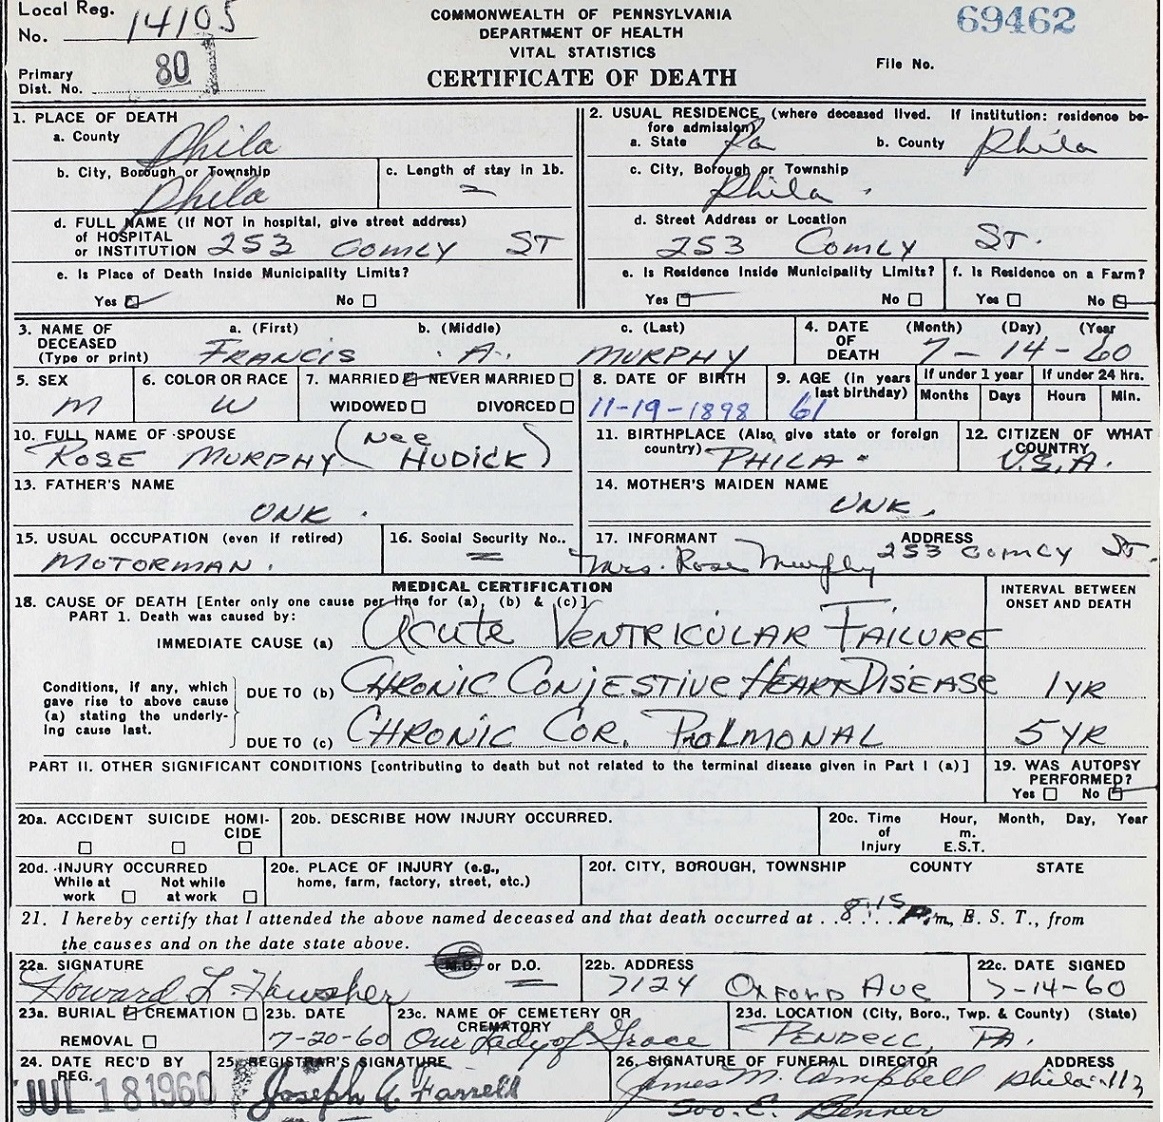 Local Reg. No. 14105
COMMONWEALTH OF PENNSYLVANIA
DEPARTMENT OF HEALTH
VITAL STATISTICS
CERTIFICATE OF DEATH
69462
File No.
Primary Dist. No. 80
1. PLACE OF DEATH
a. County Phila
b. City, Borough or Township Phila
c. Length of stay in 1b. –
d. FULL NAME (If NOT in hospital, give street address) of HOSPITAL or INSTITUTION 253 Comly ST
e. Is Place of Death Inside Municipality Limits?
Yes No
2. USUAL RESIDENCE (where deceased lived. If institution: residence before admission)
a. State Pa b. County Phila
c. City, Borough or Township Phila.
d. Street Address or Location
253 Comly ST.
e. Is Residence Inside Municipality Limits? Yes No
f. Is Residence on a Farm? Yes No
3. NAME OF DECEASED (Type or print)
a. (First) b. (Middle) c. (Last)
FRANCIS A. MURPHY
4. DATE OF DEATH (Month) (Day) (Year
7-14-60
5. SEX M
6. COLOR OR RACE W
7. MARRIED NEVER MARRIED
WIDOWED DIVORCED
8. DATE OF BIRTH 11-19-1898
9. AGE (in years last birthday) 61
If under 1 year Months Days
If under 24 hrs. Hours Min.
10. FULL NAME OF SPOUSE
ROSE MURPHY (nee HUDICK)
11. BIRTHPLACE (Also give state or foreign country) PHILA.
12. CITIZEN OF WHAT COUNTRY U.S.A.
13. FATHER'S NAME
UNK.
14. MOTHER'S MAIDEN NAME
UNK.
15. USUAL OCCUPATION (even if retired)
MOTORMAN.
16. Social Security No..
17. INFORMANT ADDRESS
Mrs. Rose Murphy 253 Comly ST.
MEDICAL CERTIFICATION
18. CAUSE OF DEATH [Enter only one cause per line for (a), (b) & (c)]
INTERVAL BETWEEN ONSET AND DEATH
PART 1. Death was caused by:
IMMEDIATE CAUSE (a) Acute VENTRICULAR FAILURE
Conditions, if any, which gave rise to above cause (a) stating the underlying cause last.
DUE TO (b) CHRONIC CONJESTIVE HEART DISEASE 1 YR
DUE TO (c) CHRONIC COR. PULMONAL 5 YR
PART II. OTHER SIGNIFICANT CONDITIONS [contributing to death but not related to the terminal disease given in Part I (a)]
19. WAS AUTOPSY PERFORMED?
Yes No
20a. ACCIDENT SUICIDE HOMICIDE
20b. DESCRIBE HOW INJURY OCCURRED.
20c. Time of Injury Hour, m. E.S.T. Month, Day, Year
20d. INJURY OCCURRED
While at work Not while at work
20e. PLACE OF INJURY (e.g., home, farm, factory, street, etc.)
20f. CITY, BOROUGH, TOWNSHIP COUNTY STATE
21. I hereby certify that I attended the above named deceased and that death occurred at 8:15 P.m, E. S. T., from
the causes and on the date state above.
22a. SIGNATURE M.D. or D.O.
Howard L.
22b. ADDRESS
7124 OXFORD AVE
22c. DATE SIGNED
7-14-60
23a. BURIAL CREMATION
REMOVAL
23b. DATE
7-20-60
23c. NAME OF CEMETERY OR CREMATORY
Our Lady of Grace
23d. LOCATION (City, Boro., Twp. & County) (State)
PENDELL, PA.
24. DATE REC'D BY REG.
JUL 18 1960
25. REGISTRAR'S SIGNATURE
Joseph A. Farrell
26. SIGNATURE OF FUNERAL DIRECTOR ADDRESS
James M. Campbell Phila
Benner